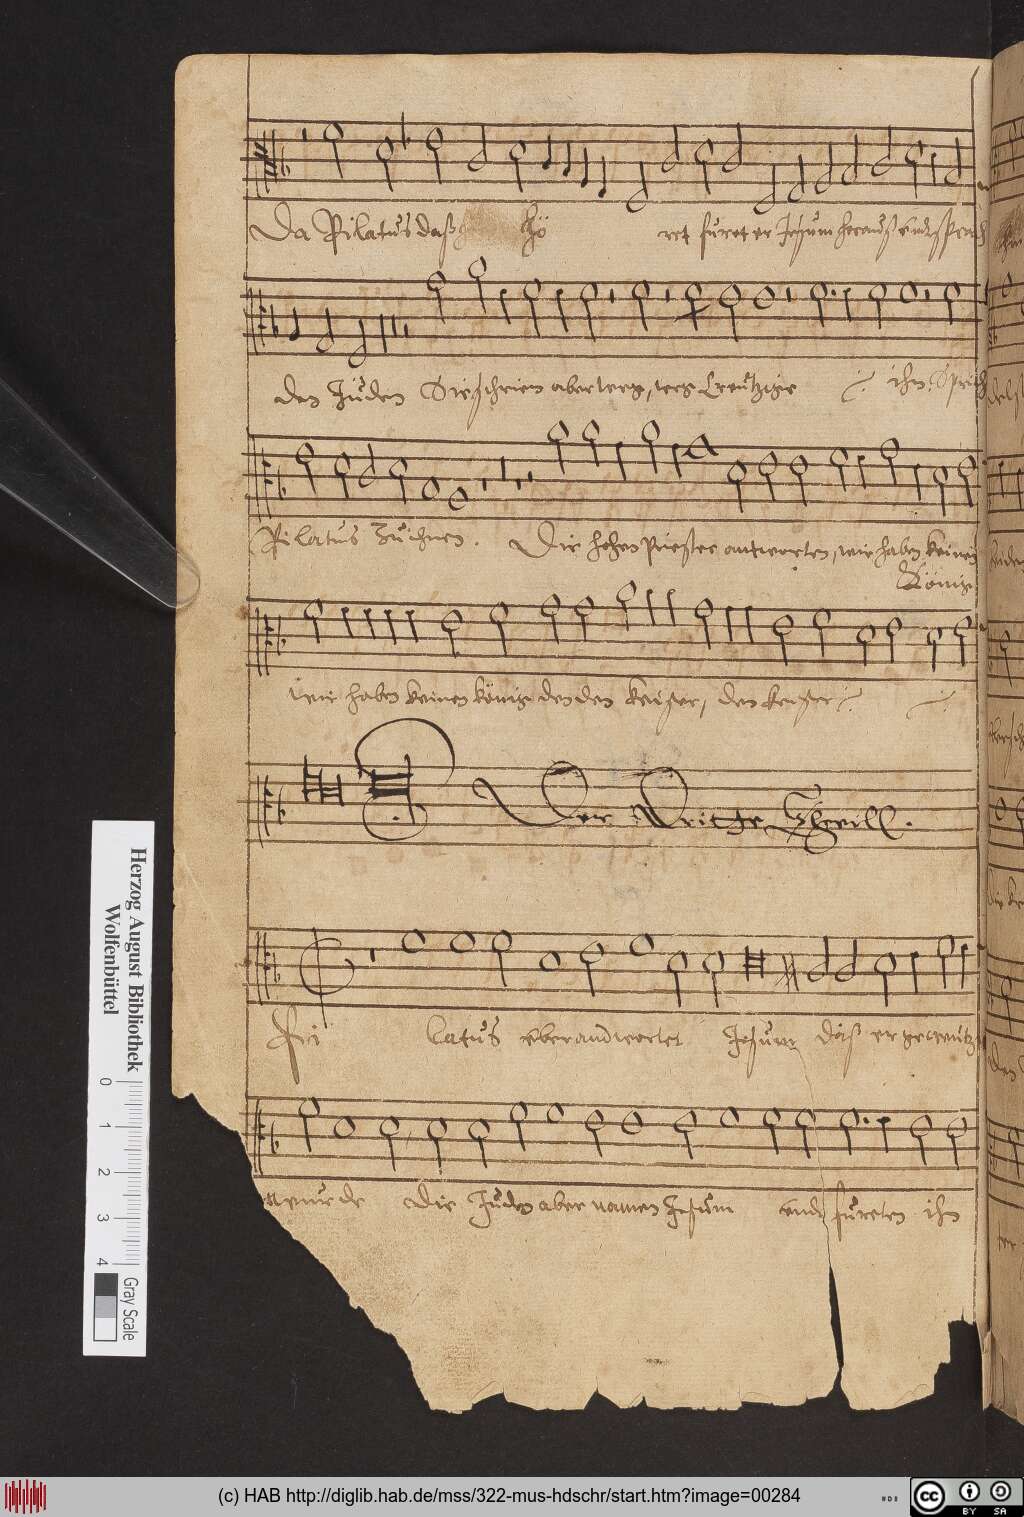 Da Pilatus daß hö ret füret er Jesum herauß undt sprach
den Jüden Sie schrien aber weg, weg Creutzige ihn, Sprich
Pilatus Zu ihnen. Die hohen Priester antworten, wir haben keinen
König
wir haben keinen könig denden keiser, den keiser
Der Dritte Theill.
Pi latus uberandwortet Jesum daß er gecreutz
wurde Die Jüden aber namen Jesum und füreten ihn
Herzog August Bibliothek
Wolfenbüttel
0 1 2 3 4
Gray Scale
(c) HAB http://diglib.hab.de/mss/322-mus-hdschr/start.htm?image=00284
cc BY SA